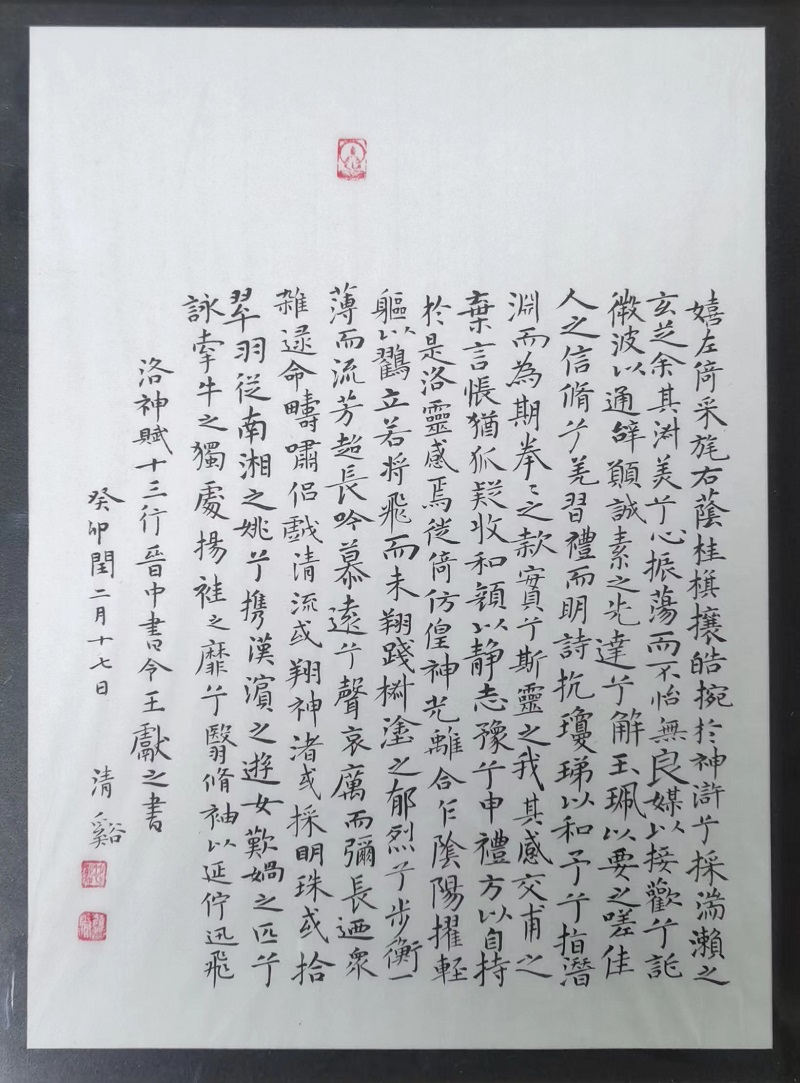 嬉左倚采旄右蔭桂旗攘皓捥於神滸兮採湍瀨之
玄芝余其淑美兮心振蕩而不怡無良媒以接歡兮託
微波以通辭願誠素之先達兮解玉珮以要之嗟佳
人之信脩兮羌習禮而明詩抗瓊珶以和予兮指潛
淵而為期拳々之款實兮斯靈之我其感交甫之
棄言悵猶狐疑收和顏以静志豫兮申禮方以自持
於是洛靈感焉徙倚仿偟神光離合乍陰陽擢輕
軀以鶴立若將飛而未翔踐椒塗之郁烈兮步衡一
薄而流芳超長吟慕遠兮聲哀厲而彌長迺眾
雜逯命疇嘯侶戲清流或翔神渚或採明珠或拾
翠羽從南湘之姚兮攜漢濱之遊女歎媧之匹兮
詠牽牛之獨處揚袿之靡兮翳脩袖以延佇迅飛
洛神賦十三行晉中書令王獻之書
癸卯閏二月十七日 清谿